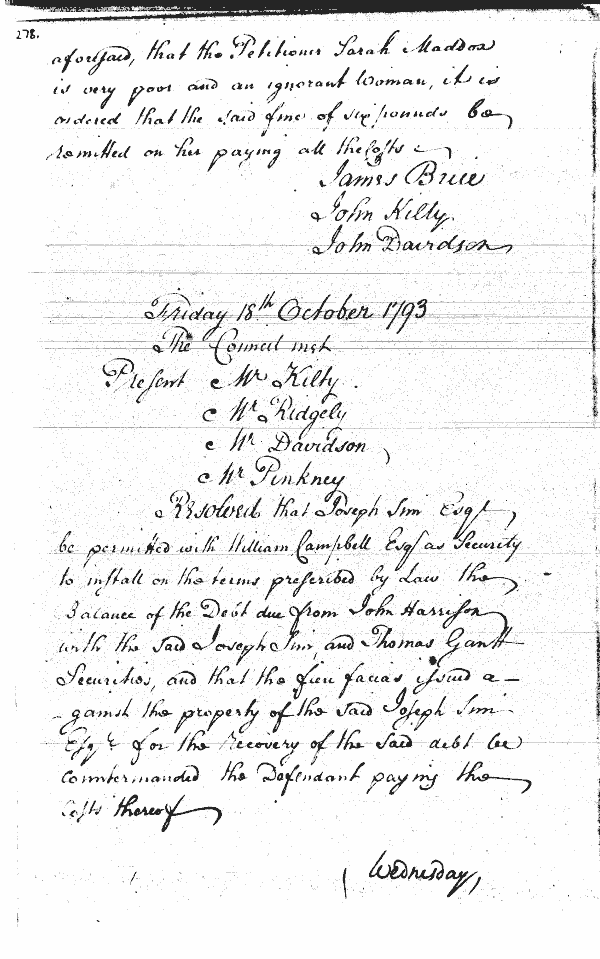 278.
aforesaid, that the Petitioner Sarah Maddox
is very poor and an ignorant Woman, it is
ordered that the said fine of six pounds be
remitted on her paying all the Costs
James Brice
John Kilty.
John Davidson
Friday 18th October 1793
The Council met
Present Mr Kilty.
Mr Ridgely
Mr Davidson
Mr Pinkney
Resolved that Joseph Sim Esqr
be permitted with William Campbell Esqr as Security
to install on the terms prescribed by Law the
Balance of the Debt due from John Harrison
with the said Joseph Sim, and Thomas Gantt
Securities, and that the fieri facias issued a-
-gainst the property of the said Joseph Sim
Esqr for the Recovery of the said debt be
Countermanded the Defendant paying the
Costs thereof
Wednesday,